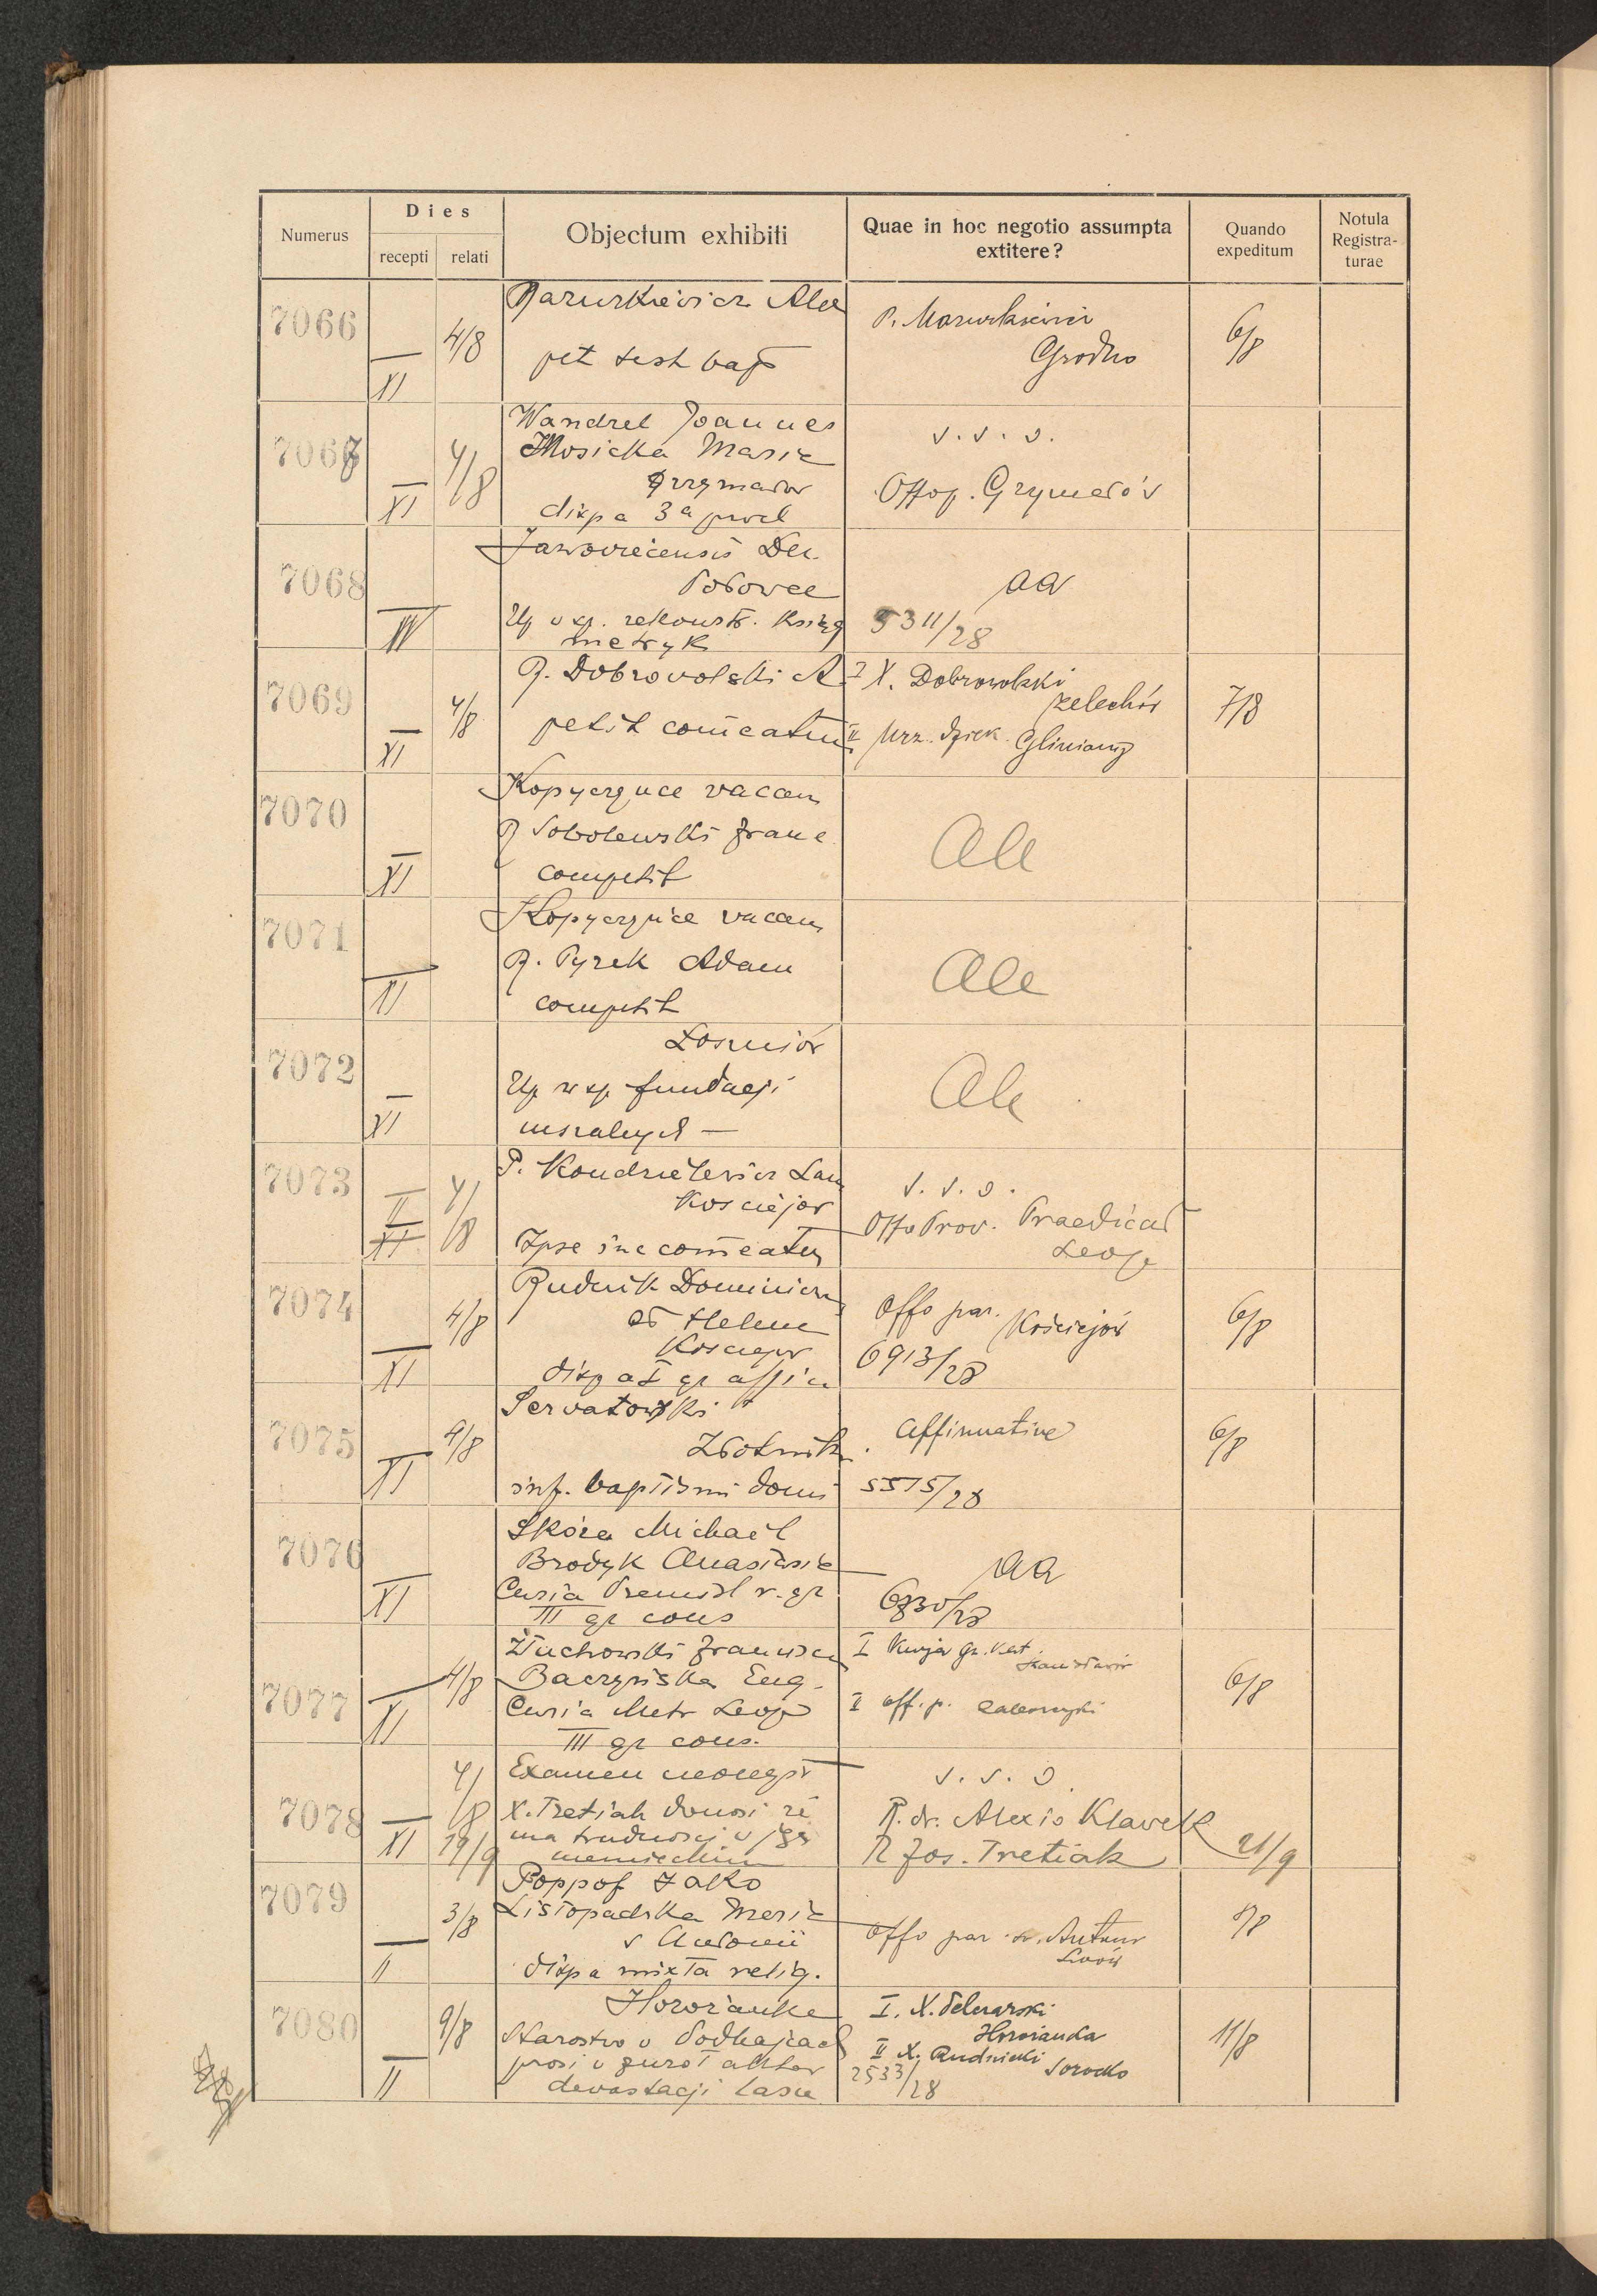 Numerus
Dies
recepti relati
Objectum exhibiti
Quae in hoc negotio assumpta
extitere?
Quando
expeditum
Notula
Registra-
turae
7066
XI
4/8
pet test bapt
Grodno
6/8
7067
XI
4/8
Wandzel Joannes
Mosicka Maria
dispa 3a procl
v. s. v.
Offop. Grzymałów
7068
IV
Dec.
Up v sp. rekonstr. Ksiąg
metryk
aa
5311/28
7069
XI
4/8
R. Dobrovolski A
petit comeatum
I X. Dobrowolski
Żelechów
II Urz. dziek. Gliniany
7/8
7070
XI
Kopyczynce vacan
R Sobolewski Franc
competit
Ale
7071
XI
Kopyczynce vacan
R. Pyrek Adam
competit
Ale
7072
XI
Up w sp. fundacji
mszalnych —
Ale
7073
II
XI
4/8
Ipse in comeatum
Offo Prov. Praedicat
Leop
7074
XI
4/8
Rudnik Dominicus
et Helena
Offo par. Kościejów
6913/28
6/8
7075
XI
4/8
Servatowski
inf. baptismi domi
Affirmative
5515/28
6/8
7076
XI
Skóra Michaël
Brodyk Anastasia
Curia Premisl r. gr
III gr cons
aa
7077
XI
4/8
Żuchowski Francisc
Baczyńska Eug.
Curia Metr Leop
III gr cons.
I Kurja gr. kat.
Stanisławów
II off. p. Zaleszczyki
6/8
7078
XI
4/8
19/9
Examen
X. Tretiak donosi że
ma trudności v jęz
niemieckim
R. dr. Alexio Klawek
R Jos. Tretiak
21/9
7079
II
3/8
Poppof
Listopadzka Maria
s Antonii
dispa mixta relig.
Offo par. św. Antoni
Lwów
8/8
7080
II
9/8
Horożanka
Starostvo v Podhajcach
prosi o zwrot aktov
devastacji lasu
I. X.
Horożanka
II X. Rudnicki Sorocko
2533/28
11/8